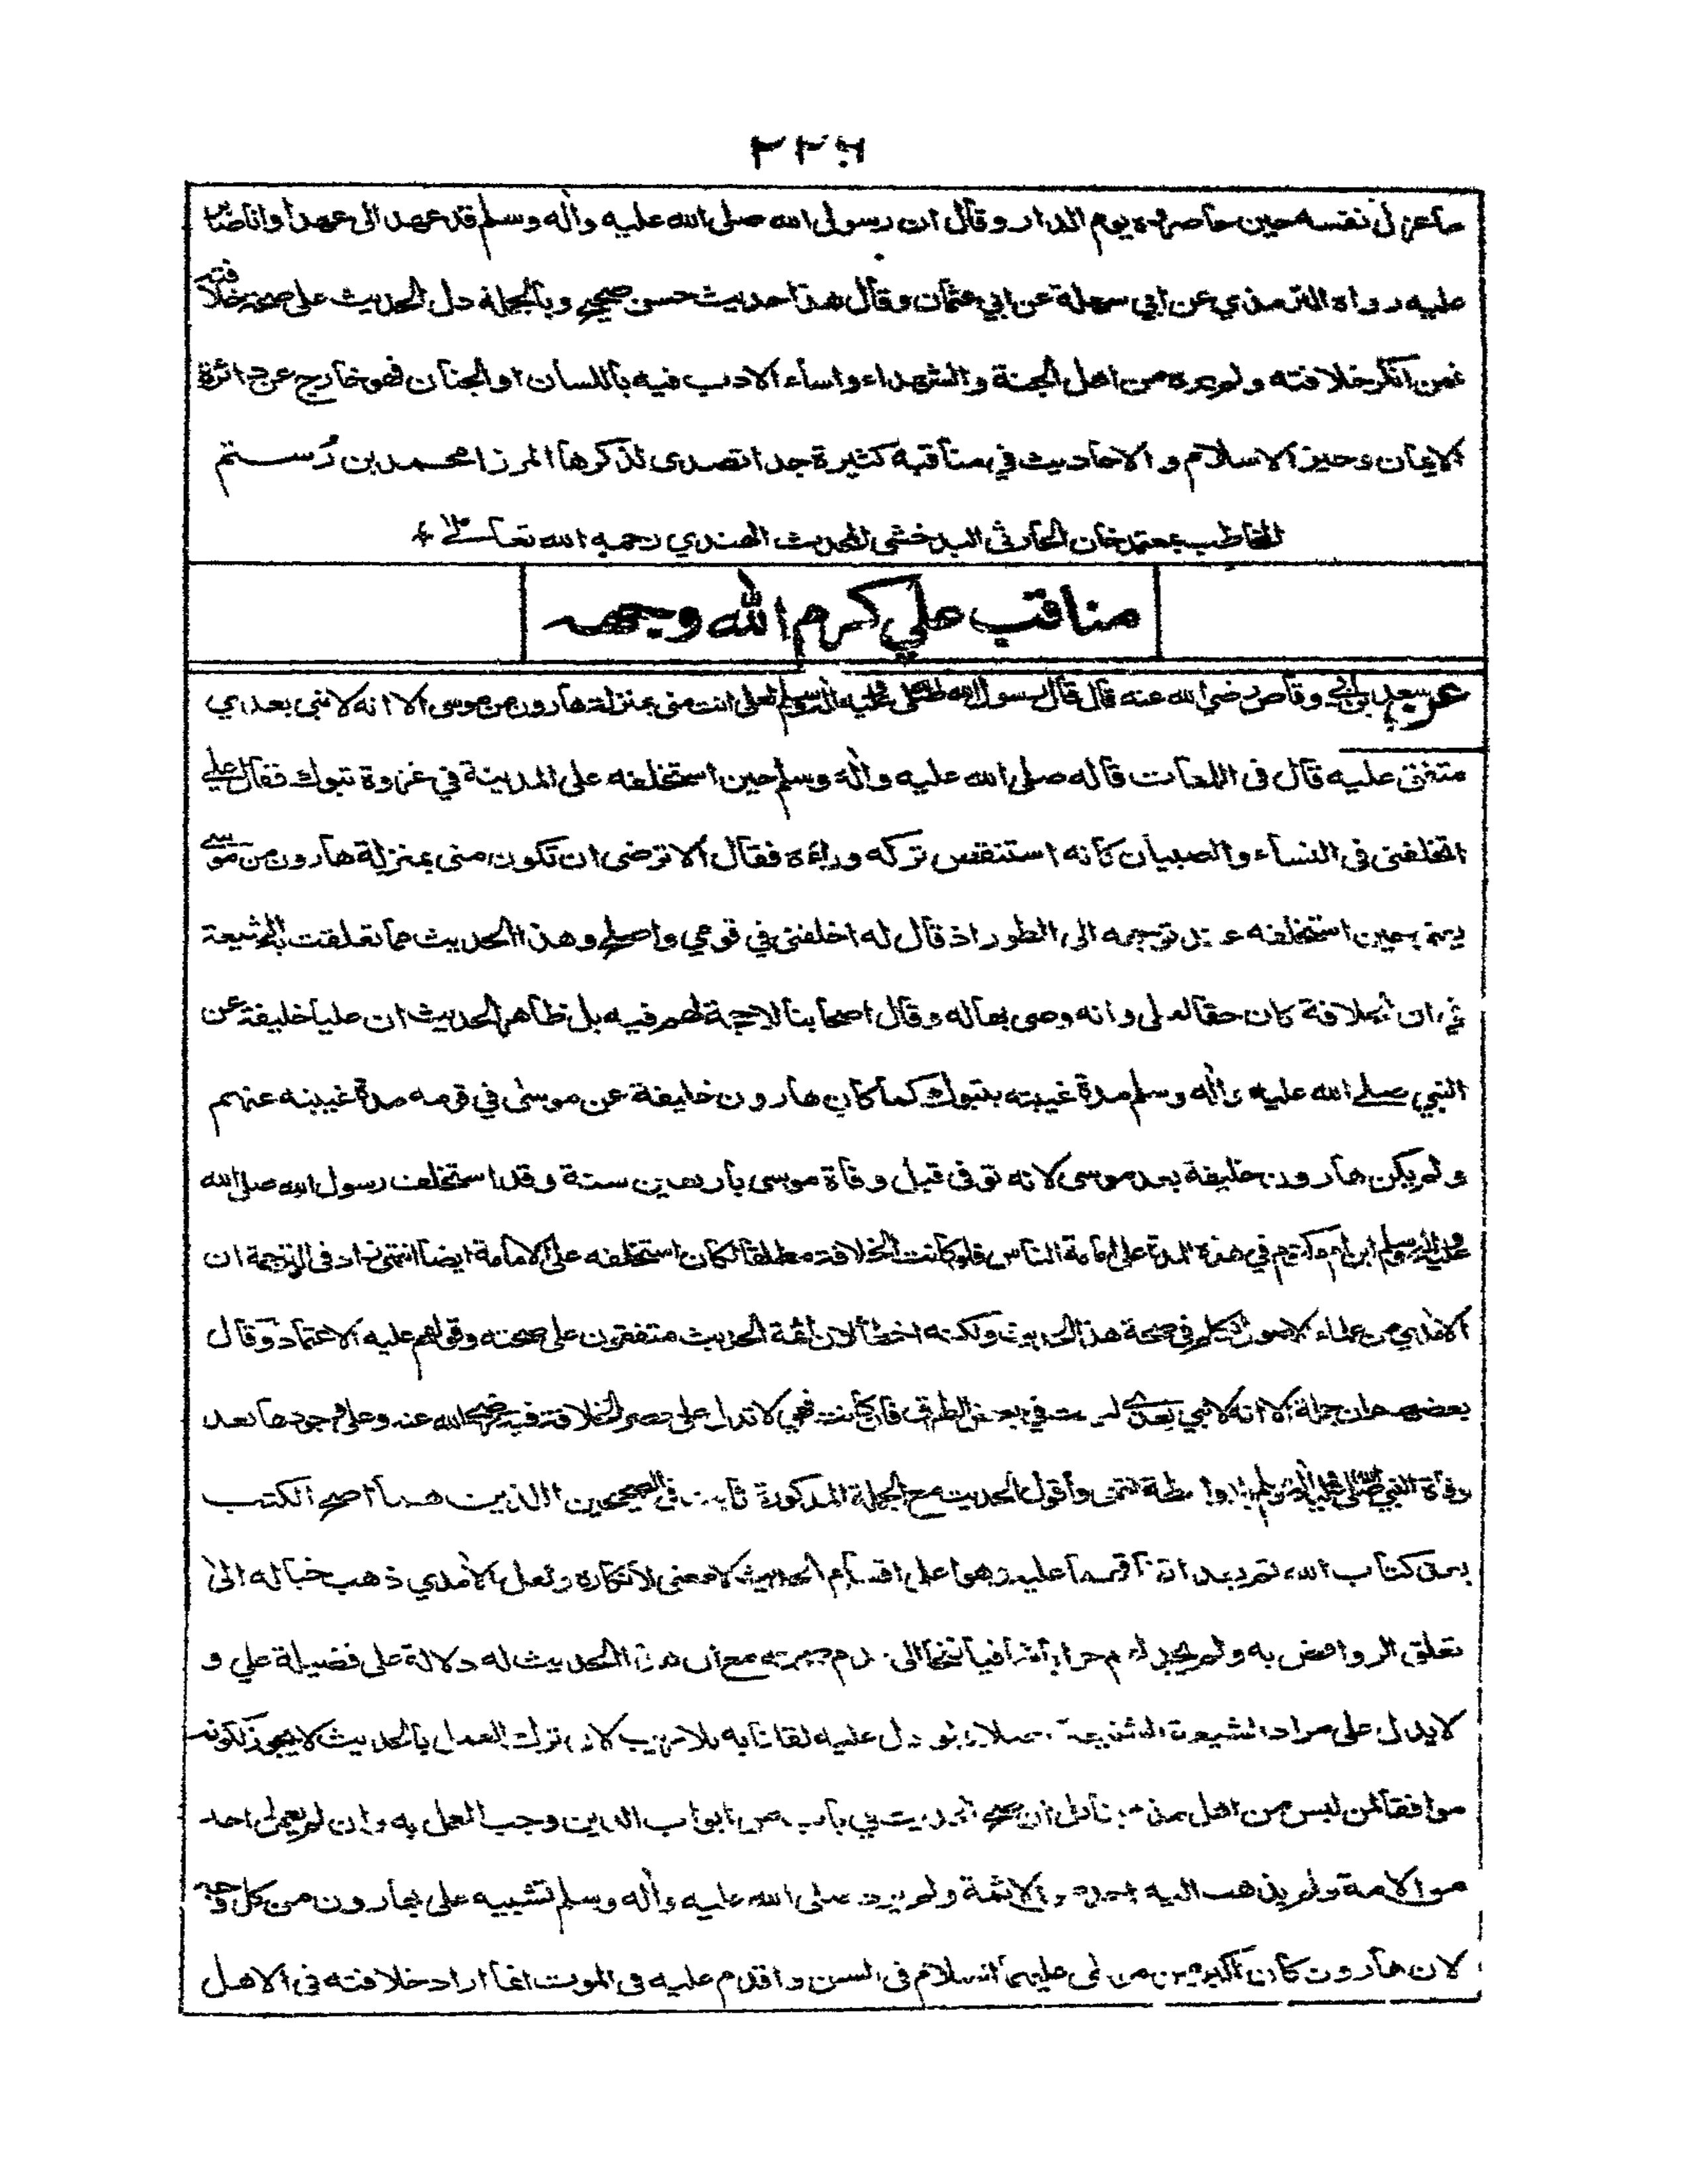 ۲۲۶
ما عزل نفسه حين حاصروه يوم الدار وقال ان رسول الله صلى الله عليه وآله وسلم قد عهد الى عهدا وانا صابر
عليه رواه الترمذي عن ابي سهلة عن ابي عثمان وقال هذا حديث حسن صحيح وبالجملة دل الحديث على صحة خلافته
فمن انكر خلافته ولم يره من اهل الجنة والشهداء واساء الادب فيه باللسان او الجنان فهو خارج عن دائرة
الايمان وحيز الاسلام و الاحاديث في مناقبه كثيرة جدا تصدى لذكرها المرزا محمد بن رُستم
المخاطب بمعتمد خان الحارثي البدخشي المحدث الهندي رحمه الله تعالى
مناقب علي كرم الله وجهه
عن سعد بن ابي وقاص رضي الله عنه قال قال رسول الله صلى الله عليه وآله وسلم لعلى انت منى بمنزلة هارون من موسى الا انه لا نبي بعدي
متفق عليه قال فى اللمعات قاله صلى الله عليه وآله وسلم حين استخلفه على المدينة في غزوة تبوك فقال علي
اتخلفنى فى النساء والصبيان كانه استنقص تركه وراءه فقال الا ترضى ان تكون منى بمنزلة هارون من موسى
يعنى حين استخلفه عند توجهه الى الطور اذ قال له اخلفنى في قومي واصلح وهذا الحديث مما تعلقت به الشيعة
في ان الخلافة كان حقا لعلى وانه وصى بها له وقال اصحابنا لا حجة لهم فيه بل ظاهر الحديث ان عليا خليفة عن
النبي صلى الله عليه وآله وسلم مدة غيبته بتبوك كما كان هارون خليفة عن موسى في قومه مدة غيبته عنهم
ولم يكن هارون خليفة بعد موسى لانه توفى قبل وفاة موسى باربعين سنة وقد استخلف رسول الله صلى الله
عليه وآله وسلم ابن ام مكتوم في هذه المدة على امامة الناس فلو كانت الخلافة مطلقا لكان استخلفه على الامامة ايضا انتهى زاد فى الترجمة ان
الآمدي من علماء الاصول تكلم في صحة هذا الحديث ولكنه اخطأ لان ائمة الحديث متفقون على صحته وقولهم عليه الاعتماد وقال
بعضهم ان جملة الا انه لا نبي بعدي ليست في بعض الطرق فان كانت فهي لا تدل على حصر الخلافة فيه رضي الله عنه وعلى وجودها بعد
وفاة النبي صلى الله عليه وآله وسلم بلا واسطة انتهى واقول الحديث مع الجملة المذكورة ثابت فى الصحيحين الذين هما اصح الكتب
بعد كتاب الله اقسام الحديث لا معنى لانكاره ولعل الآمدي ذهب خياله الى
تعلق الروافض به ولم يجد مع ان هذا الحديث له دلالة على فضيلة علي و
لا يدل على مراد الشيعة الشنيعة اصلا ولو دل عليه لقلنا به بلا ريب لان ترك العمل بالحديث لا يجوز لكونه
موافقا لمن ليس من اهل ان صح الحديث في باب من ابواب الدين وجب العمل به وان لم يعمل احد
من الامة ولم يذهب اليه احد من الائمة ولم يرد صلى الله عليه وآله وسلم تشبيه على بهارون من كل وجه
لان هارون كان اكبر من موسى عليهما السلام فى السن واقدم عليه فى الموت انما اراد خلافته فى الاهل